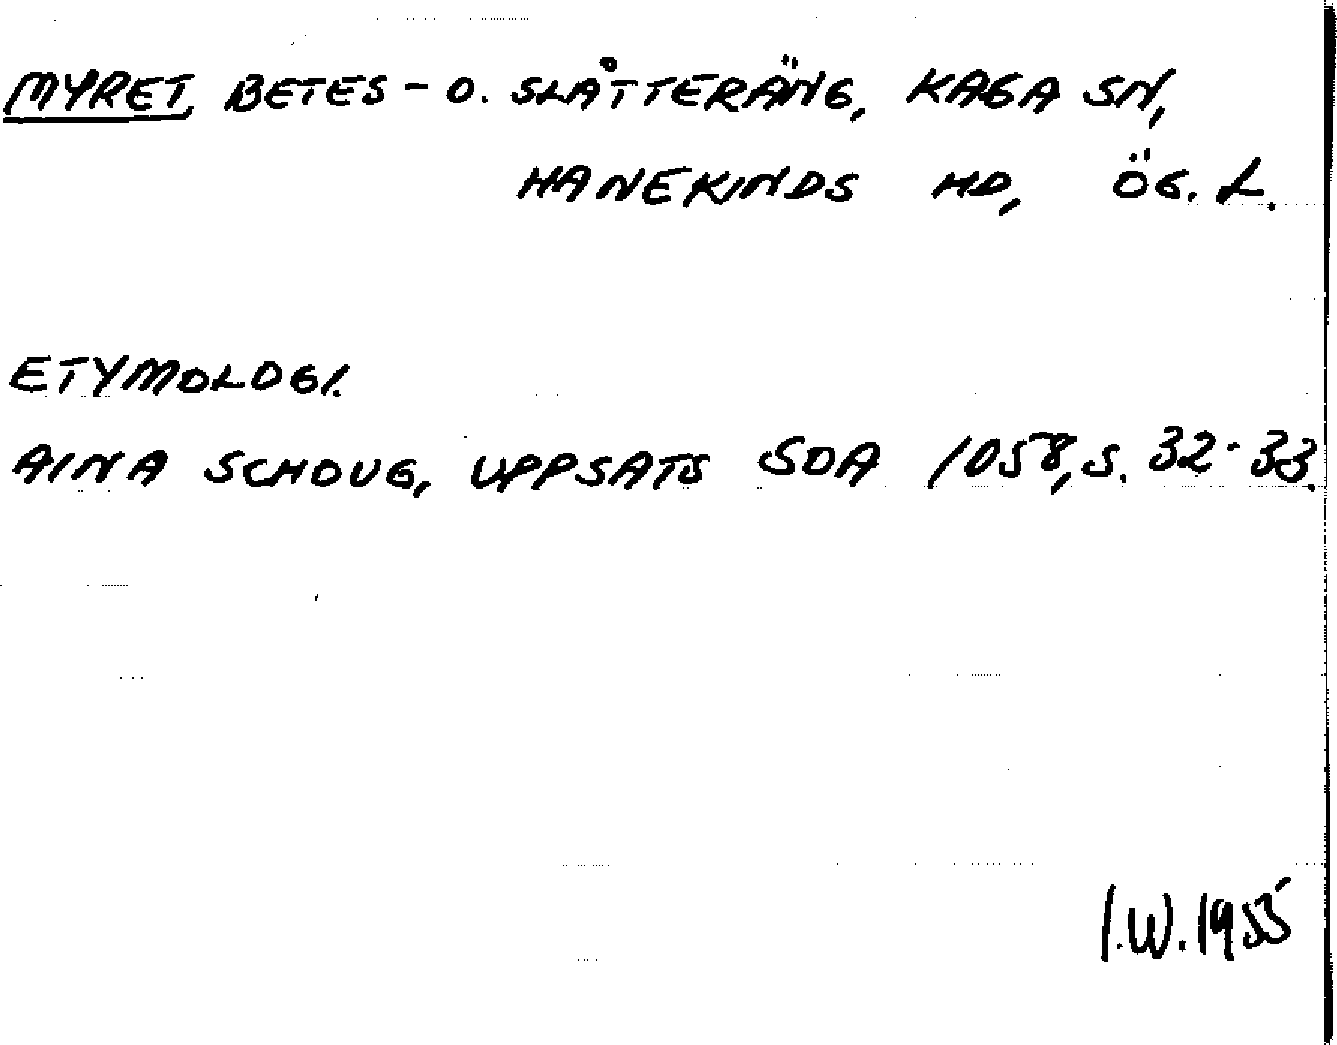 MYRET, BETES - O. SLÅTTERÄNG, KAGA SN,
HANEKINDS HD, ÖG. L.
ETYMOLOGI.
AINA SCHOUG, UPPSATS SOA 1058, S. 32-33.
I.W. 1955